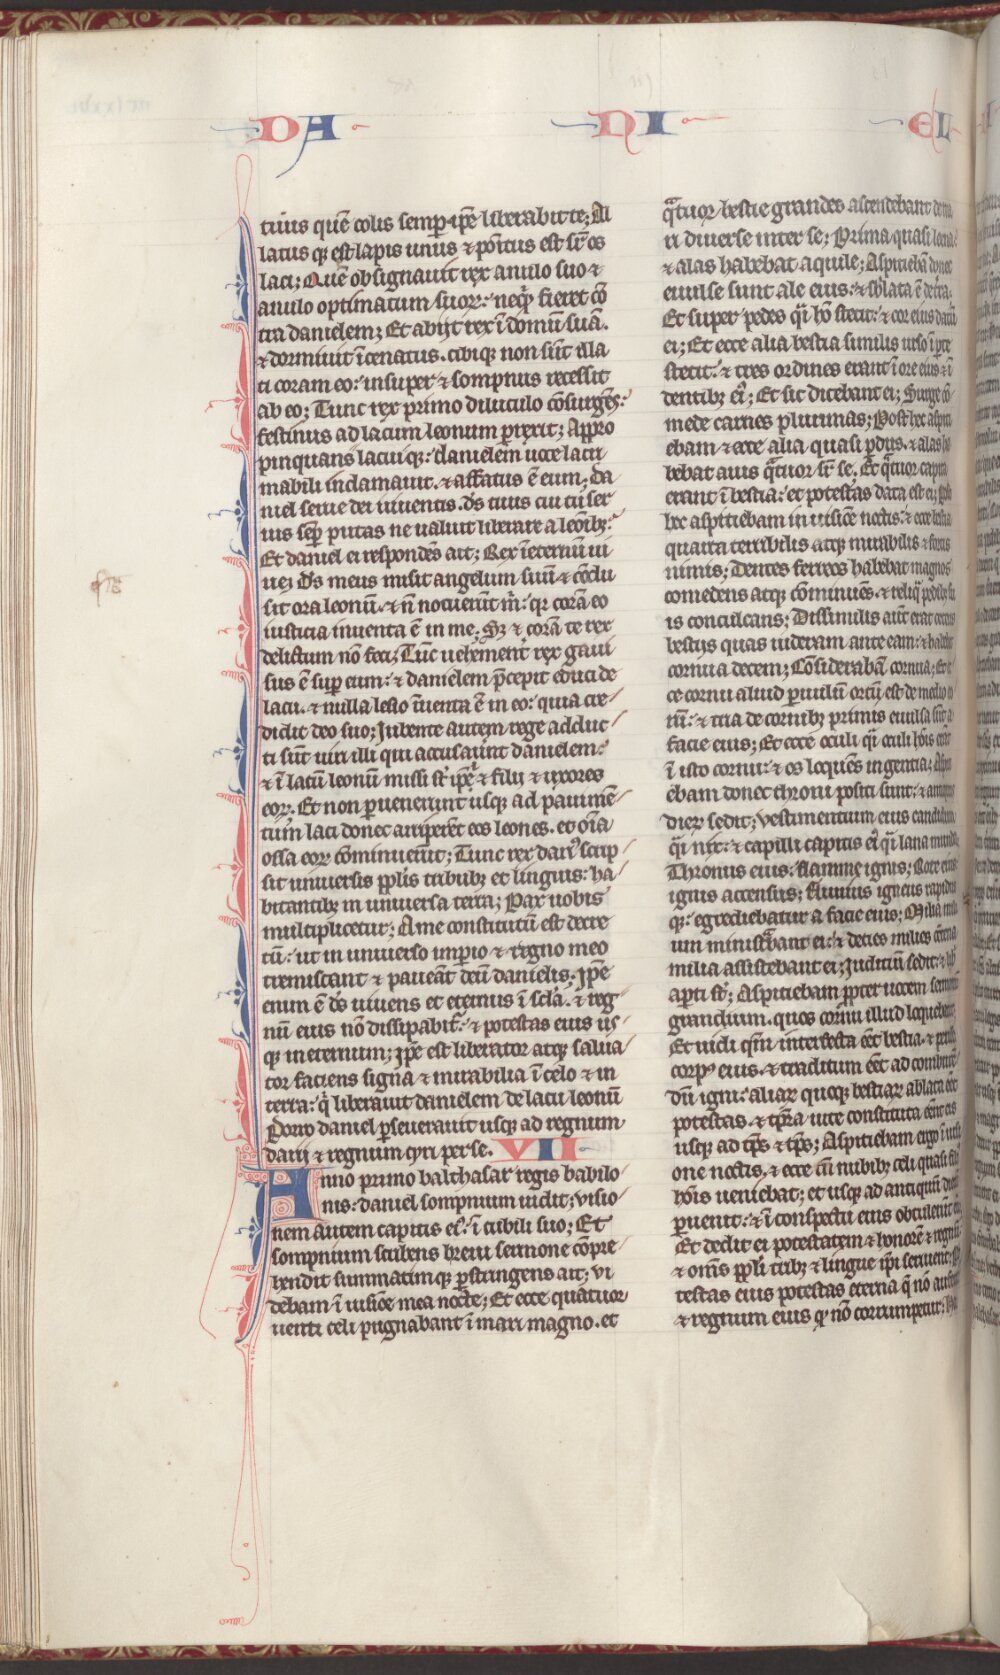 DA NI EL
tuus quē colis semp ip̄e liberabit te; Al
latus q; est lapis unus ⁊ po᷒itus est sr̄ os
laci; Quē obsignauit rex anulo suo ⁊
anulo optimatum suoꝝ: neq̇d fieret cō
tra danielem; Et abijt rex ī domū suā.
⁊ dormiuit īcenatus. cibiq; non sūt illa
ti coram eo: insuper ⁊ sompnus recessit
ab eo; Tunc rex primo diluculo cōsurgēs:
festinus ad lacum leonum ꝑrexit; Appro
pinquans lacui q;: danielem uoce lacri
mabili inclamauit. ⁊ affatus ē eum. Da
niel serue dei uiuentis. ds̄ tuus cui tu ser
uis semꝑ putas ne ualuit liberare a leōib;:
Et daniel ei respondēs ait; Rex īeternū ui
ue; Ds̄ meus misit angelum suū ⁊ cōclu
sit ora leonū. ⁊ n̄ nocuerūt m̄: qr corā eo
iusticia inuenta ē in me. Sꝫ ⁊ corā te rex
delictum nō feci; Tūc uehement̄ rex gaui
sus ē sup eum: ⁊ danielem p̄cepit educi de
lacu. ⁊ nulla lesio īuenta ē in eo: quia cre
didit deo suo; Iubente autem rege adduc
ti sūt uiri illi qui accusaūnt danielem:
⁊ ī lacū leonū missi st̄ ip̄i ⁊ filii ⁊ uxores
eoꝝ. Et non ꝑuenerunt usq; ad pauimē
tum laci donec arriperēt eos leones. et om̄ia
ossa eoꝝ cōminueūt; Tunc rex dari᷒ scrip
sit uniuersis pplis tribub; et linguis: ha
bitantib; in uniuersa terra; Pax uobis
multiplicetur; A me constitutū est decre
tū: ut in uniuerso imperio ⁊ regno meo
tremiscant ⁊ paueāt deū danielis; Ip̄e
enim ē ds̄ uiuens et eternus ī scl̄a. ⁊ reg
nū eius nō dissipabit᷑. ⁊ potestas eius us
q; in eternum; Ip̄e est liberator atq; salua
tor faciens signa ⁊ mirabilia ī celo ⁊ in
terra: q̇ liberauit danielem de lacu leonū
Porro daniel ꝑseuerauit usq; ad regnum
darij ⁊ regnum cyri perse. VII
Anno primo balthasar regis babilo
nis: daniel sompnium uidit; uisio
nem autem capitis ei᷒: ī cubili suo; Et
sompnium scribens breui sermone cōpre
hendit summatimq; ꝑstringens ait; Vi
debam ī uisiōe mea nocte; Et ecce quatuor
uenti celi pugnabant ī mari magno. et
qͣtuor bestie grandes ascendebant de ma
ri diuerse inter se; Prima quasi leena:
⁊ alas habebat aquile; Aspiciebā donec
euulse sunt ale eius: ⁊ sblata ē de tra:
Et super pedes qͣi hō stetit: ⁊ cor eius datū
ei; Et ecce alia bestia similis urso ī parte
stetit: ⁊ tres ordines erant ī ore eius ⁊ ī
dentib; ei᷒; Et sic dicebant ei; Surge cō
mede carnes plurimas; Post hec aspici
ebam ⁊ ecce alia quasi pardus. ⁊ alas ha
bebat auis qͣtuor sr̄ se. Et qͣtuor capita
erant ī bestia: et potestas data est ei; Post
hec aspiciebam in uisiōe noctis: ⁊ ecce bestia
quarta terribilis atq; mirabilis ⁊ fortis
nimis; Dentes ferreos habebat magnos
comedens atq; cōminuēs. ⁊ reliq̄ pedib; su
is conculcans; Dissimilis autē erat ceteris
bestijs quas uideram ante eam: ⁊ habebat
cornua decem; Cōsiderabā cornua: Et ec
ce cornu aliud ꝑuulū ortū est de medio eo
rū: ⁊ tria de cornib; primis euulsa sūt a
facie eius; Et ecce oculi qͣi oculi hōis erāt
ī isto cornu: ⁊ os loquēs ingentia; Aspici
ebam donec throni positi sunt: ⁊ antiquus
dierum sedit; Vestimentum eius candidum
qͣi nix: ⁊ capilli capitis ei᷒ qͣi lana munda
Thronus eius: flamme ignis; Rote eius
ignis accensus; Fluuius igneus rapidus
q;: egrediebatur a facie eius; Milia mili
um ministͣbant ei: ⁊ decies milies centena
milia assistebant ei; Iudicium sedit: ⁊ libri
aꝑti st̄; Aspiciebam ꝓpter uocem sermonum
grandium. quos cornu illud loquebatur:
Et uidi qm̄ interfecta eēt bestia. ⁊ perisset
corp᷒ eius. ⁊ traditum eēt ad comburen
dū igni: aliaꝝ quoq; bestiaꝝ ablata eēt
potestas. ⁊ tp̄ra uite constituta eēnt eis
usq; ad tp̄s ⁊ tp̄s; Aspiciebam ergo ī uisi
one noctis. ⁊ ecce cū nubib; celi quasi fili᷒
hōis ueniebat; et usq; ad antiquū dierum
ꝑuenit: ⁊ ī conspectu eius obtulerūt eū
Et dedit ei potestatem ⁊ honorē ⁊ regnū
⁊ om̄s ppl̄i trib; ⁊ lingue ip̄i seruient: Po
testas eius potestas eterna q̄ nō aufer
⁊ regnum eius qd nō corrumpetur;